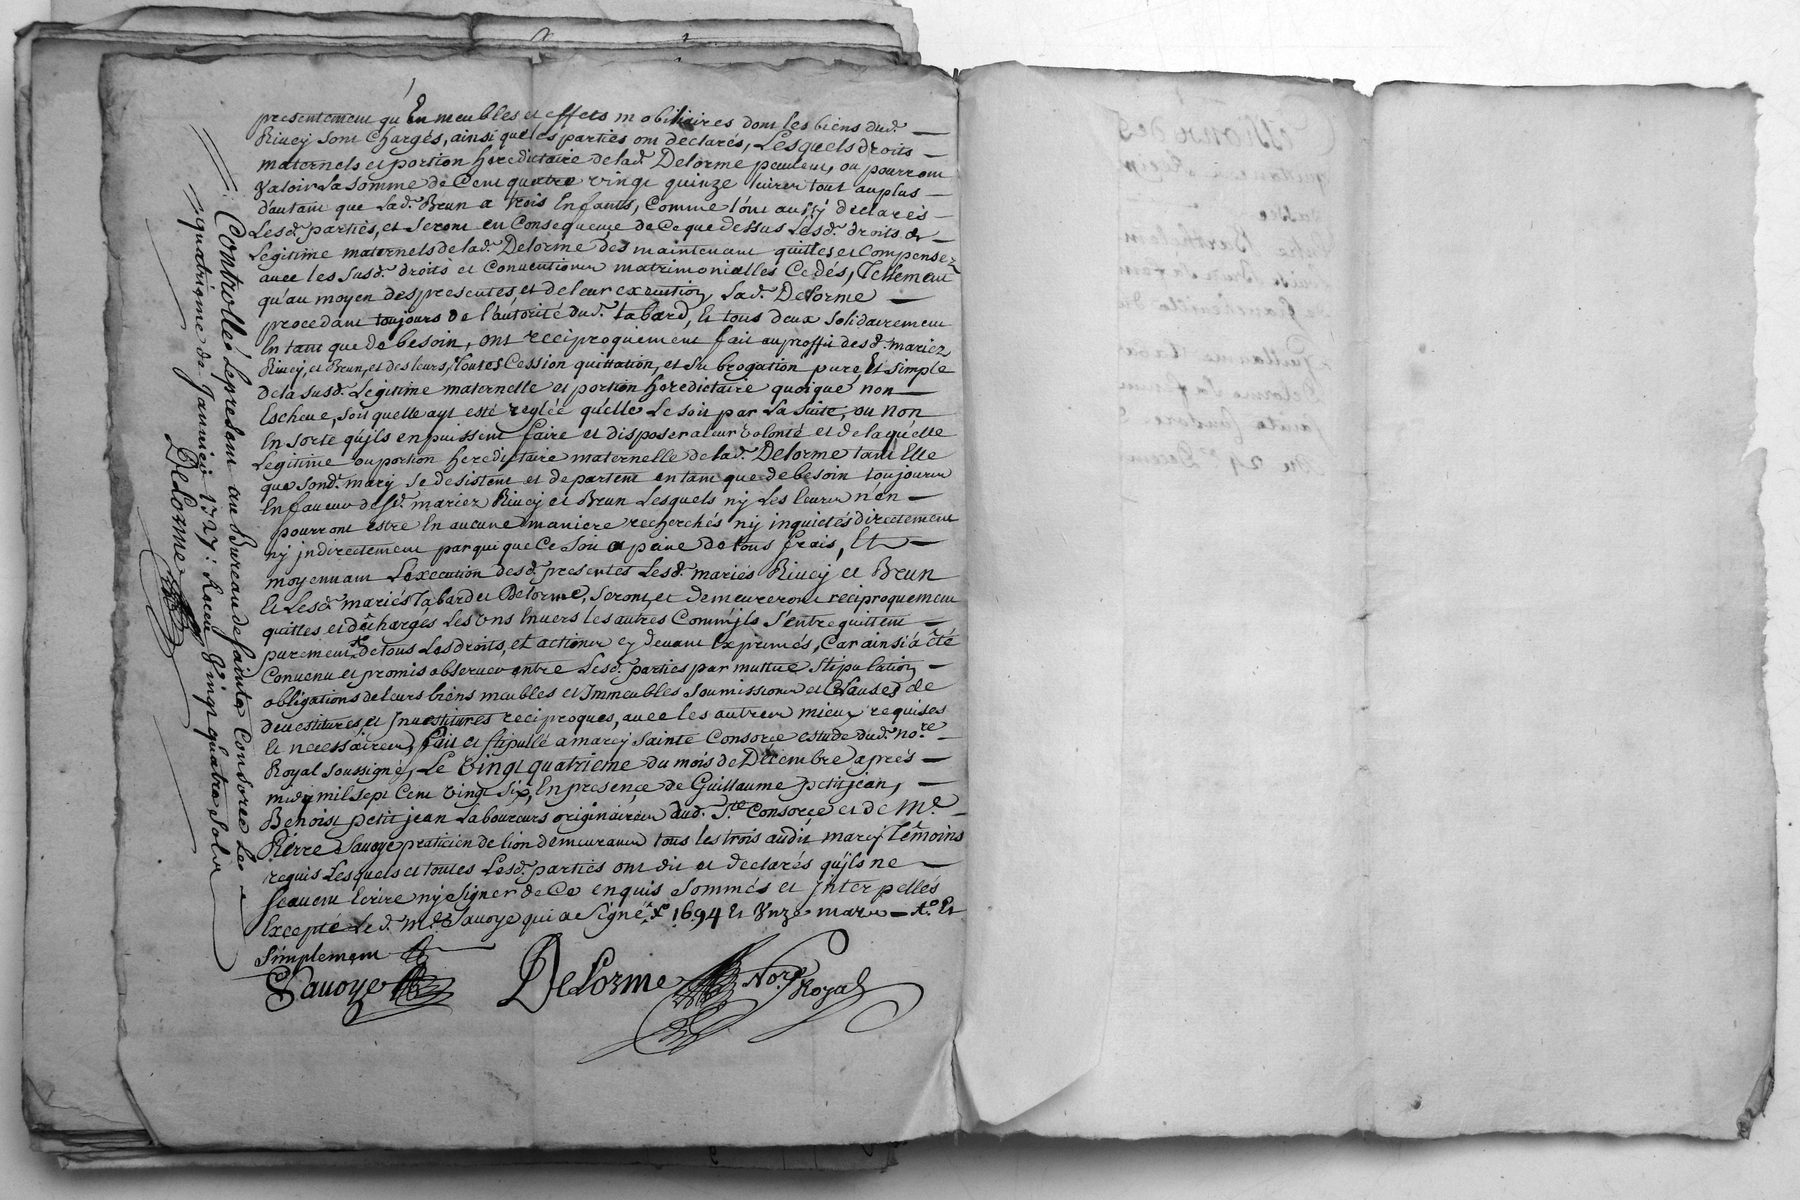 presentement qu'En meubles et effets mobiliaires dont les biens dud.
Riuey sont Chargés, ainsi que les parties ont declarés, Lesquels droits
maternels et portion hereditaire de lad. Delorme peuuent, ou pourront
Valoir La somme de Cent quatre vingt quinze liures tout au plus
d'autant que Lad. Brun a trois Enfants, Comme l'ont aussy declarés
Lesd. parties, et seront en Consequence de Ce que dessus Lesd. droits de
Legitime maternels de lad. Delorme des maintenant quittes et Compensez
auec les susd. droits et Conuentions matrimonialles Cedés, Tellement
qu'au moyen des presentes, et de leur execution, Lad. Delorme
procedant toujours de l'autorité dud. tabard, Et tous deux solidairement
En tant que de besoin, ont reciproquement fait au proffit desd. mariez
Riuey, et Brun, et des leurs, toutes Cession quittation, et subrogation pure, Et simple
de la susd. Legitime maternelle et portion hereditaire quoique non
Escheue, soit quelle ayt esté reglée qu'elle Le soit par La suite, ou non
En sorte qu'ils en puissent faire et disposer a leur volonté et de laquelle
Legitime ou portion hereditaire maternelle de lad. Delorme tant Elle
que sond. mary se desistent et departent en tant que de besoin toujours
En faueur desd. mariez Riuey et Brun Lesquels ny Les leurs n'en
pourront estre En aucune maniere recherchés ny inquietés directement
ny jndirectement par qui que Ce soit a peine de tous frais, Et
moyennant L'execution desd. presentes Lesd. mariés Riuey et Brun
Et Lesd. mariés Tabard et Delorme, seront, et demeureront reciproquement
quittes et déchargés Les Uns Enuers les autres Comm'jls s'entrequittent
purement de tous Les droits, et actions cy deuant Exprimés, Car ainsi a été
Conuenu et promis obseruer entre Lesd. parties par mutuë stipulation
obligations de leurs biens meubles et Immeubles soumissions et Clauses de
deuestitures, et Jnuestitures reciproques, auec les autres mieux requises
Et necessaires, fait et stipullé a marcy sainte Consorce estude dud. no.re
Royal soussigné, Le Vingt quatrieme du mois de Decembre aprés
midy mil sept Cent Vingt six, En presence de Guillaume petit jean,
Benoist petit jean Laboureurs originaires dud. S.te Consorce et de M.e
Pierre Sauoye praticien de lion demeurants tous les trois audit marcy Témoins
requis Lesquels et toutes Lesd. parties ont dit et declarés qu'jls ne
sçauent Ecrire ny signer de Ce enquis sommés et Jnterpellés
Excepté Led. M.e Sauoye qui a signé. 1694 Et Unze mars Et
simplement
Sauoye DeLorme No.re Royal
Controllé Le present au Bureau de sainte Consorce Le
quatrieme de Januier 1727: Receu Vingt quatre sols
DeLorme